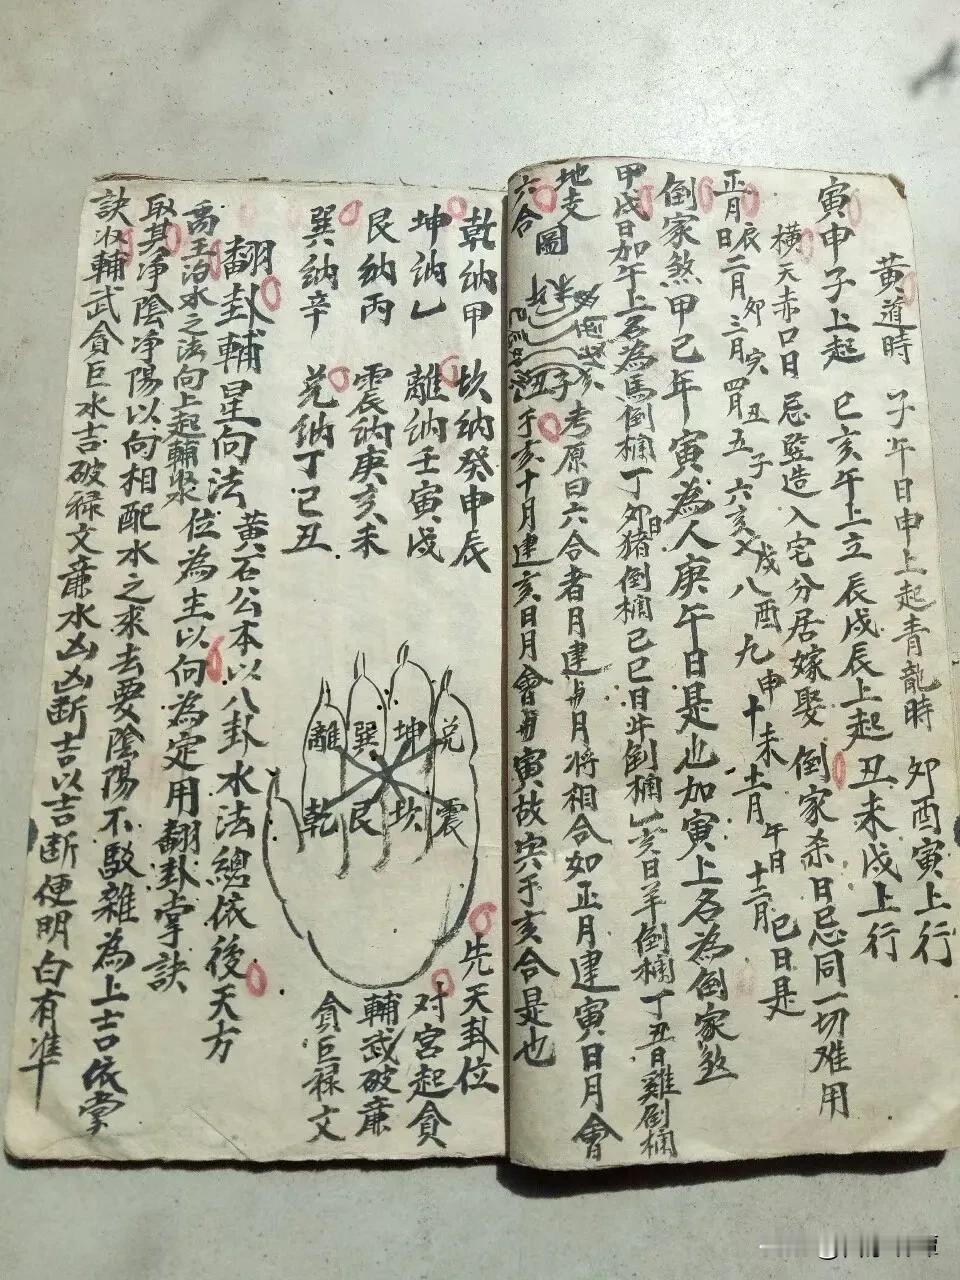 黃道時 子午日申上起青龍時 卯酉寅上行
寅申子上起 巳亥午上立 辰戌辰上起 丑未戌上行
橫天赤口日 忌竪造入宅分居嫁娶 倒家杀日忌同一切难用
正月辰日二月卯三月寅四月丑五子六亥七戌八酉九申十未十一月午日十二月巳日是
倒家煞甲己年寅為人庚午日是也加寅上名為倒家煞
甲戌日加午上名為馬倒欄丁卯日猪倒欄己巳日牛倒欄乚亥日羊倒欄丁丑日雞倒欄
地支圖 考原曰六合者月建与月将相合如正月建寅日月會
六合 子丑 于亥十月建亥日月會于寅故寅于亥合是也
乾納甲 坎納癸申辰 先天卦位
坤納乙 離納壬寅戌 对宮起貪
艮納丙 震納庚亥未 輔武破亷
巽納辛 兑納丁巳丑 貪巨禄文
離 巽 坤 兑
乾 艮 坎 震
翻卦輔星向法 黃石公本以八卦水法總依後天方
禹王治水之法向上起輔 位為主以向為定用翻卦掌訣
取其净陰净陽以向相配水之来去要陰陽不駁雜為上吉依掌
訣 輔武貪巨水吉破禄文亷水凶凶断吉以吉断便明白有准